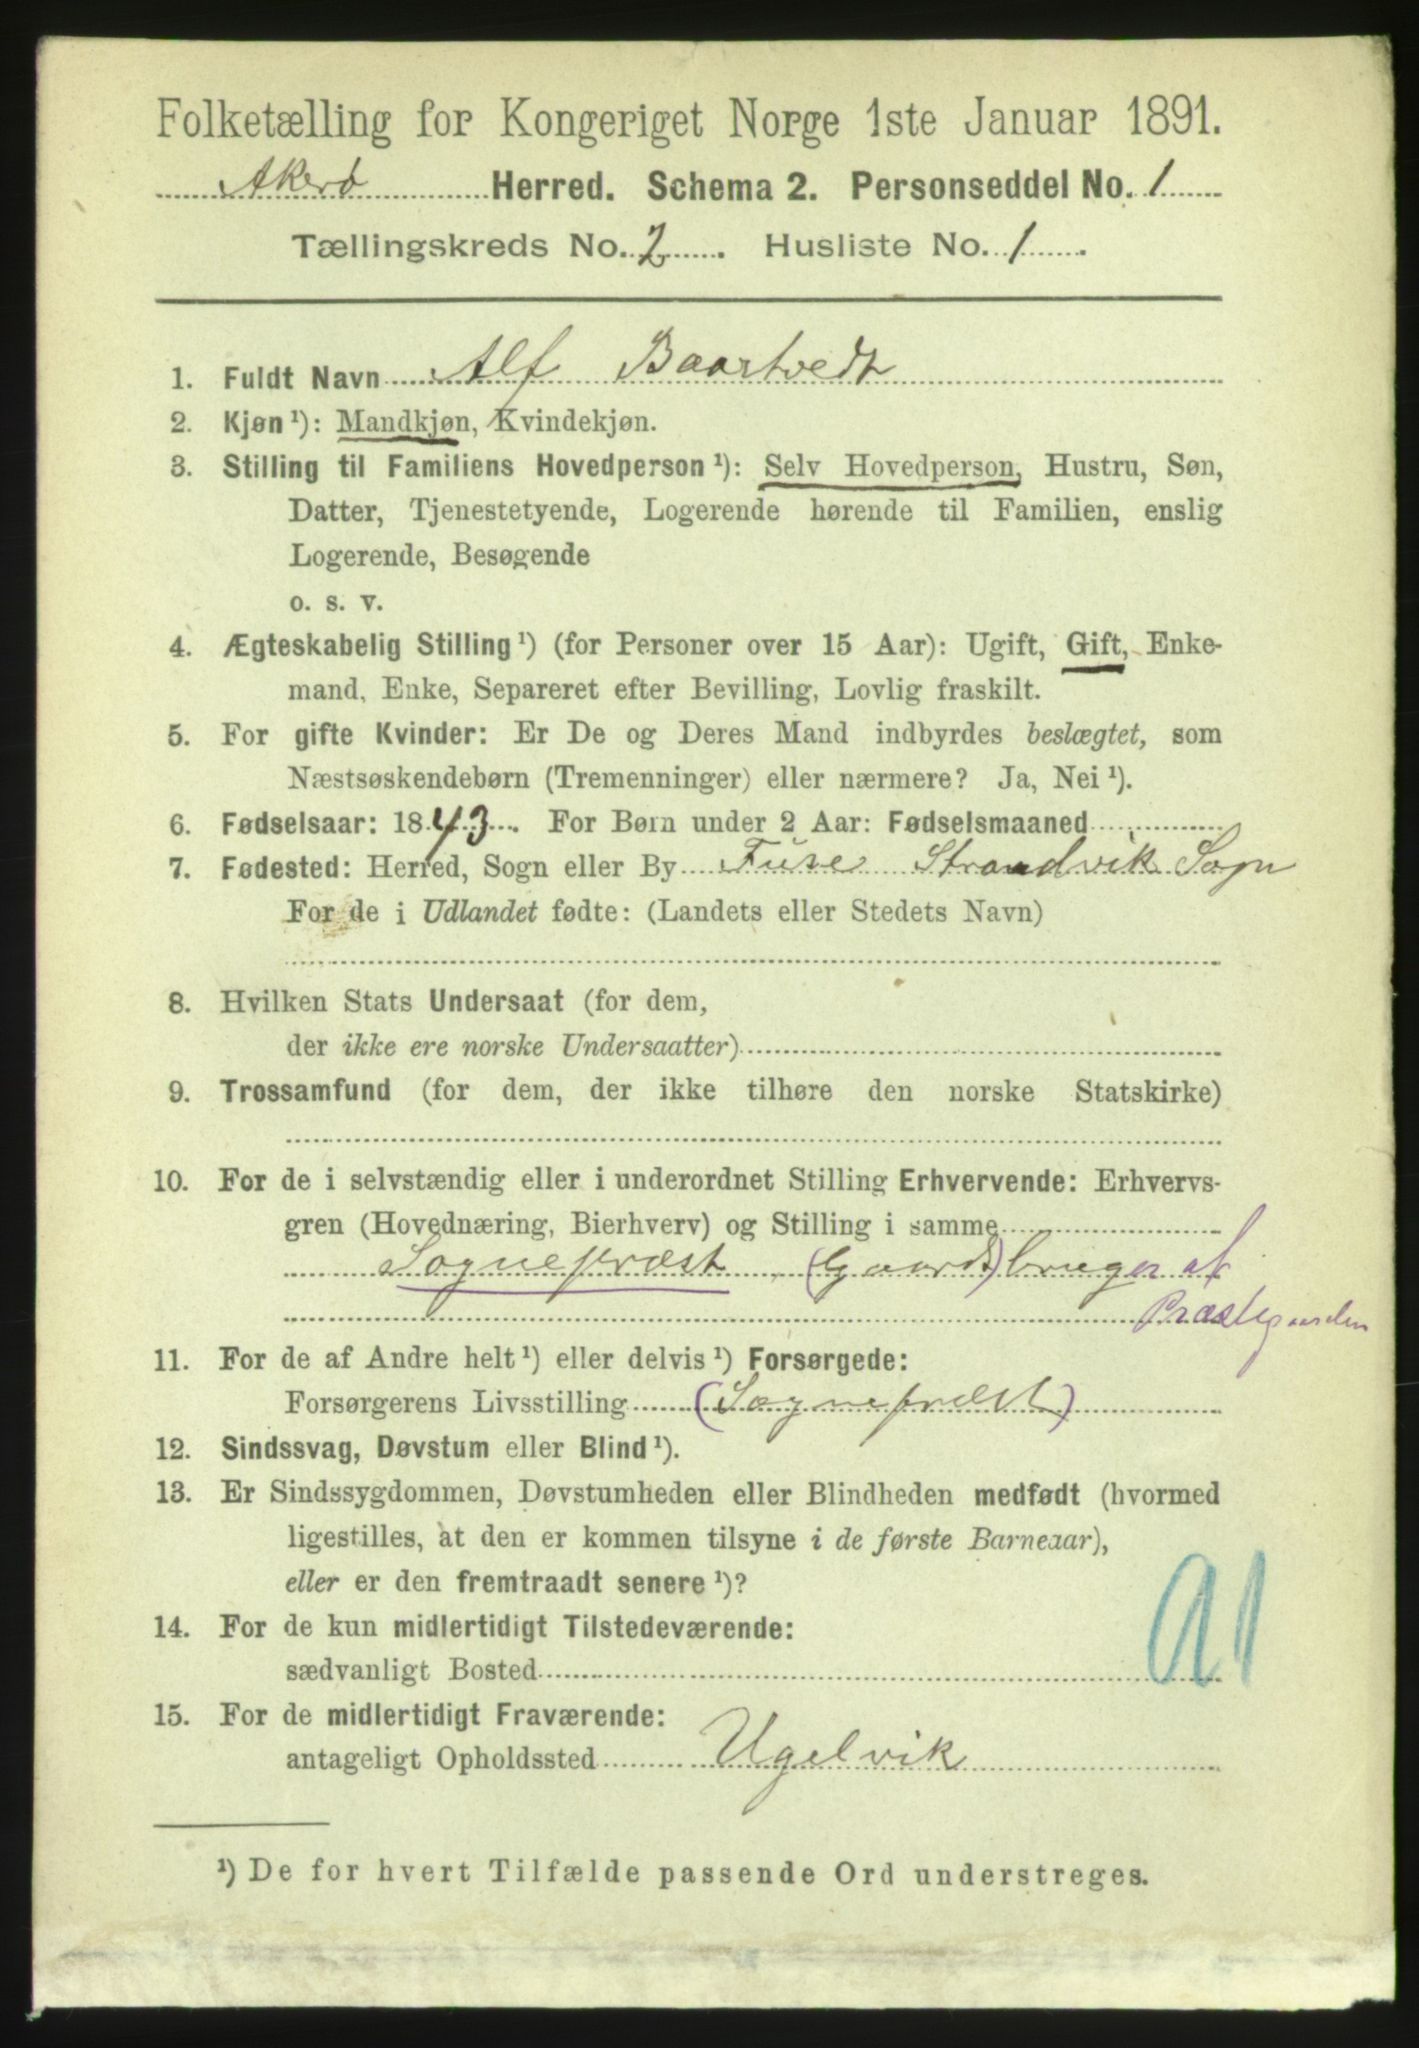 Folketælling for Kongeriget Norge 1ste Januar 1891.
Akerø Herred. Schema 2. Personseddel No. 1
Tællingskreds No. 2. Husliste No. 1.
1. Fuldt Navn Alf Baartvedt
2. Kjøn¹): Mandkjøn, Kvindekjøn.
3. Stilling til Familiens Hovedperson¹): Selv Hovedperson, Hustru, Søn,
Datter, Tjenestetyende, Logerende hørende til Familien, enslig
Logerende, Besøgende
o. s. v.
4. Ægteskabelig Stilling¹) (for Personer over 15 Aar): Ugift, Gift, Enke-
mand, Enke, Separeret efter Bevilling, Lovlig fraskilt.
5. For gifte Kvinder: Er De og Deres Mand indbyrdes beslægtet, som
Næstsøskendebørn (Tremenninger) eller nærmere? Ja, Nei¹).
6. Fødselsaar: 1843. For Børn under 2 Aar: Fødselsmaaned
7. Fødested: Herred, Sogn eller By Fuse Strandvik Sogn
For de i Udlandet fødte: (Landets eller Stedets Navn)
8. Hvilken Stats Undersaat (for dem,
der ikke ere norske Undersaatter)
9. Trossamfund (for dem, der ikke tilhøre den norske Statskirke)
10. For de i selvstændig eller i underordnet Stilling Erhvervende: Erhvervs-
gren (Hovednæring, Bierhverv) og Stilling i samme
Sognepræst (Gaards)bruger af
Præstegaarden
11. For de af Andre helt¹) eller delvis¹) Forsørgede:
Forsørgerens Livsstilling (Sognepræst)
12. Sindssvag, Døvstum eller Blind¹).
13. Er Sindssygdommen, Døvstumheden eller Blindheden medfødt (hvormed
ligestilles, at den er kommen tilsyne i de første Barneaar),
eller er den fremtraadt senere¹)?
14. For de kun midlertidigt Tilstedeværende:
sædvanligt Bosted
15. For de midlertidigt Fraværende:
antageligt Opholdssted Ugelvik
¹) De for hvert Tilfælde passende Ord understreges.